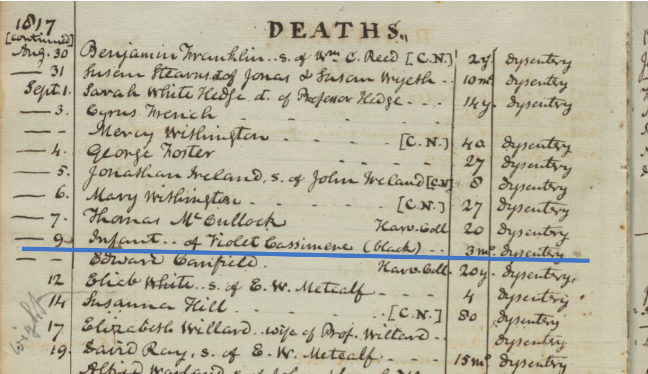 1817 DEATHS.
[continued]
Aug. 30 Benjamin Franklin.. s. of Wm C. Reed [C.N.] 2y dysentery
— 31 Susan Stearns d. of Jonas & Susan Wyeth .. 10 mo. dysentery
Sept. 1. Sarah White Hedge d. of Professor Hedge . . . 14y. dysentery
— 3. Cyrus French . . . .
— - Mercy Withington [C.N.] 40 dysentery
— 4. George Foster . . . . 27 dysentery
— 5. Jonathan Ireland, s. of John Ireland [C.N.] 8 dysentery
— 6. Mary Withington . . . [C.N.] 27 dysentery
— 7. Thomas McCullock Harv. Coll 20 dysentery
— 9. Infant .. of Violet Cassimere (black) .. 3 mo. dysentery
— - Edward Canfield. Harv. Coll. 20y. dysentery.
12 White.. s. of E. W. Metcalf . . . . 4 dysentery
14 Susanna Hill . . . [C.N.] 80 dysentery
17 Elizabeth Willard.. wife of Prof. Willard .. dysentery
19. David Ray, s. of E. W. Metcalf . . . . 15 mo. dysentery
Alfred s. of